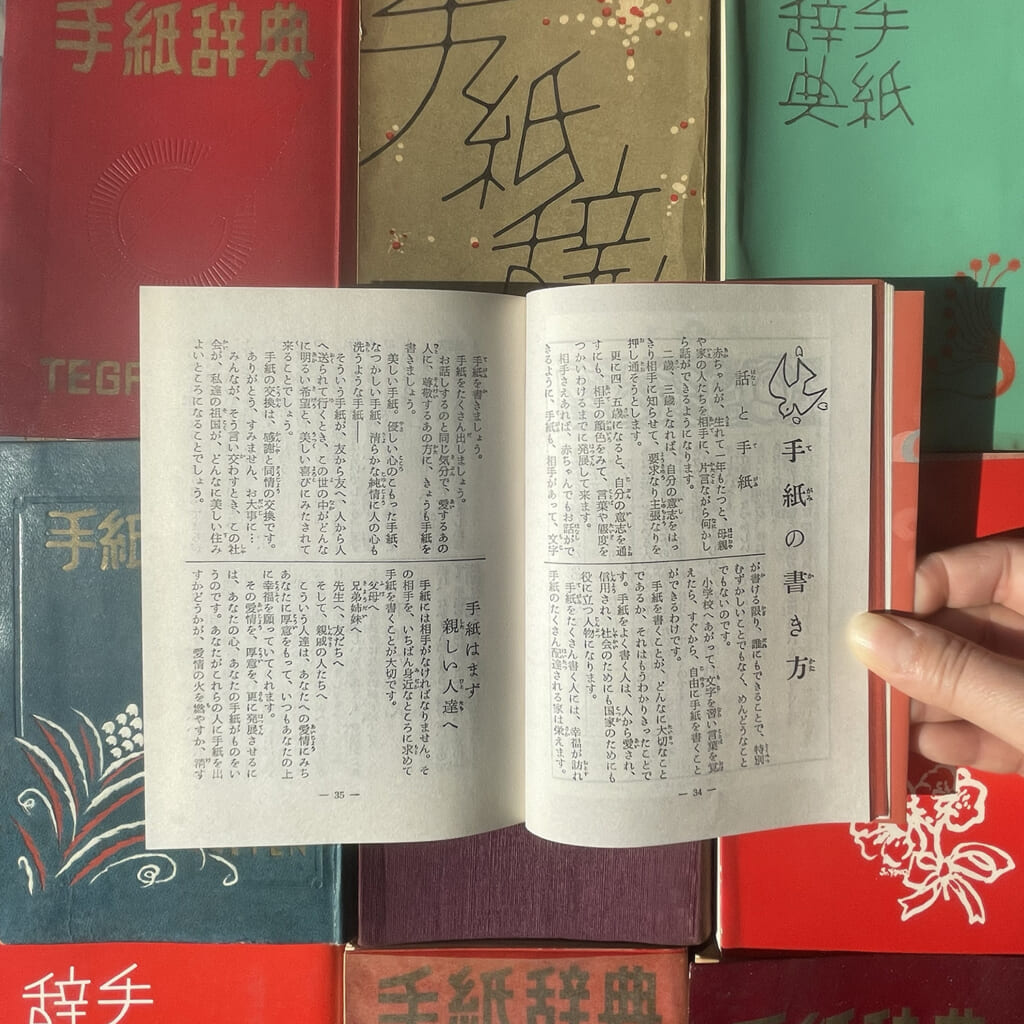 手紙辞典
手紙辞
手紙
辞典
手紙の書き方
話と手紙
赤ちゃんが、生れて一年もたつと、母親
や家の人たちを相手に、片言ながら何かし
ら話ができるようになります。
二歳、三歳となれば、自分の意志をはっ
きり相手に知らせて、要求なり主張なりを
押し通そうとします。
更に四、五歳になると、自分の意志を通
すにも、相手の顔色をみて、言葉や態度を
つかいわけるまでに発展して来ます。
相手さえあれば、赤ちゃんでもお話がで
きるように、手紙も、相手があって、文字
が書ける限り、誰にもできることで、特別
むずかしいことでもなく、めんどうなこと
でもないのです。
小学校へあがって、文字を習い言葉を覚
えたら、すぐから、自由に手紙を書くこと
ができるわけです。
手紙を書くことが、どんなに大切なこと
であるか、それはもうわかりきったことで
す。手紙をよく書く人は、人から愛され、
信用され、社会のためにも国家のためにも
役に立つ人物になります。
手紙をたくさん書く人には、幸福が訪れ
手紙のたくさん配達される家は栄えます。
— 34 —
手紙を書きましょう。
手紙をたくさん出しましょう。
お話しするのと同じ気分で、愛するあの
人に、尊敬するあの方に、きょうも手紙を
書きましょう。
美しい手紙。優しい心のこもった手紙、
なつかしい手紙、清らかな純情に人の心も
洗うような手紙——
そういう手紙が、友から友へ、人から人
へ送られて行くとき、この世の中がどんな
に明るい希望と、美しい喜びにみたされて
来ることでしょう。
手紙の交換は、感謝と同情の交換です。
ありがとう、すみません、お大事に…
みんなが、そう言い交わすとき、この社
会が、私達の祖国が、どんなに美しい住み
よいところになることでしょう。
手紙はまず
親しい人達へ
手紙には相手がなければなりません。そ
の相手を、いちばん身近なところに求めて
手紙を書くことが大切です。
父母へ
兄弟姉妹へ
先生へ、友だちへ
そして、親戚の人たちへ
こういう人達は、あなたへの愛情にみち
あなたに厚意をもって、いつもあなたの上
に幸福を願っていてくれます。
その愛情を、厚意を、更に発展させるに
は、あなたの心、あなたの手紙がものをい
うのです。あなたがこれらの人に手紙を出
すかどうかが、愛情の火を燃やすか、消す
— 35 —
手紙
手
辞
手紙辞典